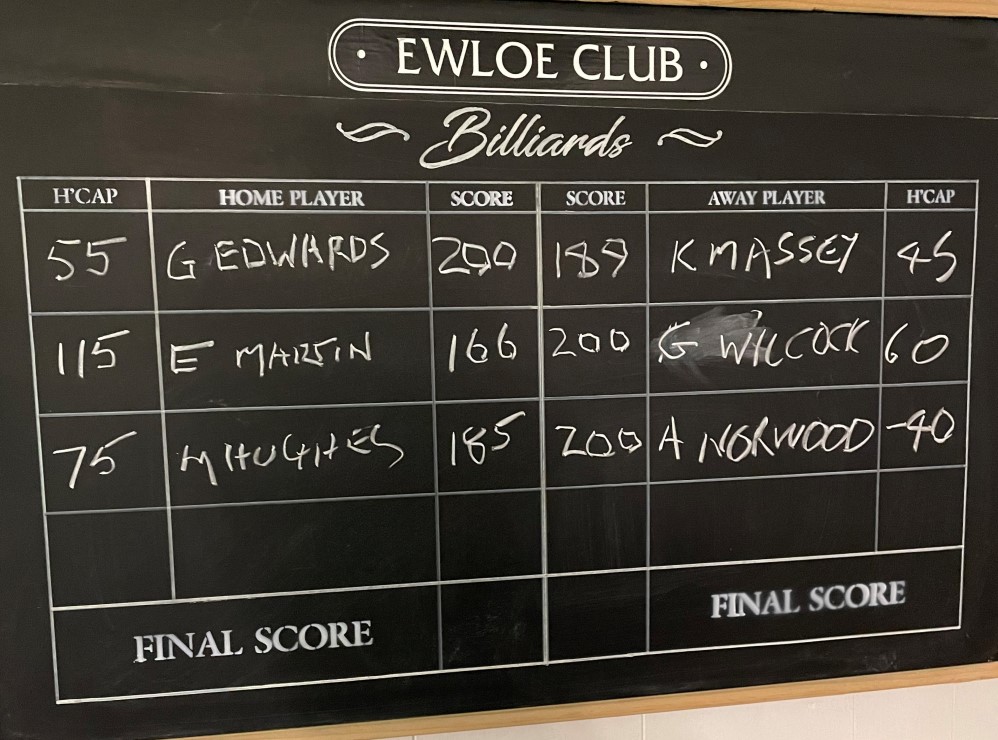 EWLOE CLUB
Billiards
H'CAP HOME PLAYER SCORE SCORE AWAY PLAYER H'CAP
55 G EDWARDS 200 189 K MASSEY 45
115 E MARTIN 166 200 G WILCOCK 60
75 M HUGHES 185 200 A NORWOOD -40
FINAL SCORE FINAL SCORE